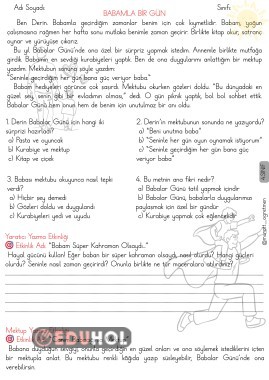 Adı Soyadı Sınıfı
BABAMLA BİR GÜN
Ben Derin. Babamla geçirdiğim zamanlar benim için çok kıymetlidir. Babam, yoğun
çalışmasına rağmen her hafta sonu mutlaka benimle zaman geçirir. Birlikte kitap okur, satranç
oynar ve yürüyüşe çıkarız.
Bu yıl Babalar Günü'nde ona özel bir sürpriz yapmak istedim. Annemle birlikte mutfağa
girdik. Babamın en sevdiği kurabiyeleri yaptık. Ben de ona duygularımı anlattığım bir mektup
yazdım. Mektubun sonuna şöyle yazdım:
"Seninle geçirdiğim her gün bana güç veriyor baba."
Babam hediyeleri görünce çok şaşırdı. Mektubu okurken gözleri doldu. "Bu dünyadaki en
güzel şey, senin gibi bir evladım olması," dedi. O gün piknik yaptık, bol bol sohbet ettik.
Babalar Günü hem onun hem de benim için unutulmaz bir anı oldu.
1. Derin Babalar Günü için hangi iki
sürprizi hazırladı?
a) Pasta ve oyuncak
b) Kurabiye ve mektup
c) Kitap ve çiçek
2. Derin'in mektubunun sonunda ne yazıyordu?
a) "Beni unutma baba"
b) "Seninle her gün oyun oynamak istiyorum"
c) "Seninle geçirdiğim her gün bana güç
veriyor baba"
3. Babası mektubu okuyunca nasıl tepki
verdi?
a) Hiçbir şey demedi
b) Gözleri doldu ve duygulandı
c) Kurabiyeleri yedi ve uyudu
4. Bu metnin ana fikri nedir?
a) Babalar Günü tatil yapmak içindir
b) Babalar Günü, babalarla duygularımızı
paylaşmak için özel bir gündür
c) Kurabiye yapmak çok eğlencelidir
4.SINIF
Yaratıcı Yazma Etkinliği
Etkinlik Adı: "Babam Süper Kahraman Olsaydı..."
Hayal gücünü kullan! Eğer baban bir süper kahraman olsaydı, nasıl olurdu? Hangi güçleri
olurdu? Seninle nasıl zaman geçirirdi? Onunla birlikte ne tür maceralara atılırdınız?
EDUHOL
Babana duyduğun sevgiyi, onunla geçirdiğin en güzel anları ve ona söylemek istediklerini içten
bir mektupla anlat. Bu mektubu renkli kâğıda yazıp süsleyebilir, Babalar Günü'nde ona
verebilirsin.